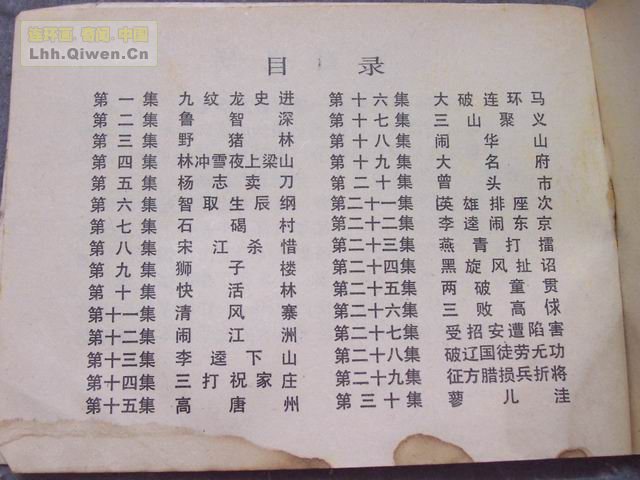 连环画.奇闻.中国
Lhh.Qiwen.Cn
目录
第一集 九纹龙史进
第二集 鲁智深
第三集 野猪林
第四集 林冲雪夜上梁山
第五集 杨志卖刀
第六集 智取生辰纲
第七集 石碣村
第八集 宋江杀惜
第九集 狮子楼
第十集 快活林
第十一集 清风寨
第十二集 闹江洲
第十三集 李逵下山
第十四集 三打祝家庄
第十五集 高唐州
第十六集 大破连环马
第十七集 三山聚义
第十八集 闹华山
第十九集 大名府
第二十集 曾头市
第二十一集 英雄排座次
第二十二集 李逵闹东京
第二十三集 燕青打擂
第二十四集 黑旋风扯诏
第二十五集 两破童贯
第二十六集 三败高俅
第二十七集 受招安遭陷害
第二十八集 破辽国徒劳无功
第二十九集 征方腊损兵折将
第三十集 蓼儿洼